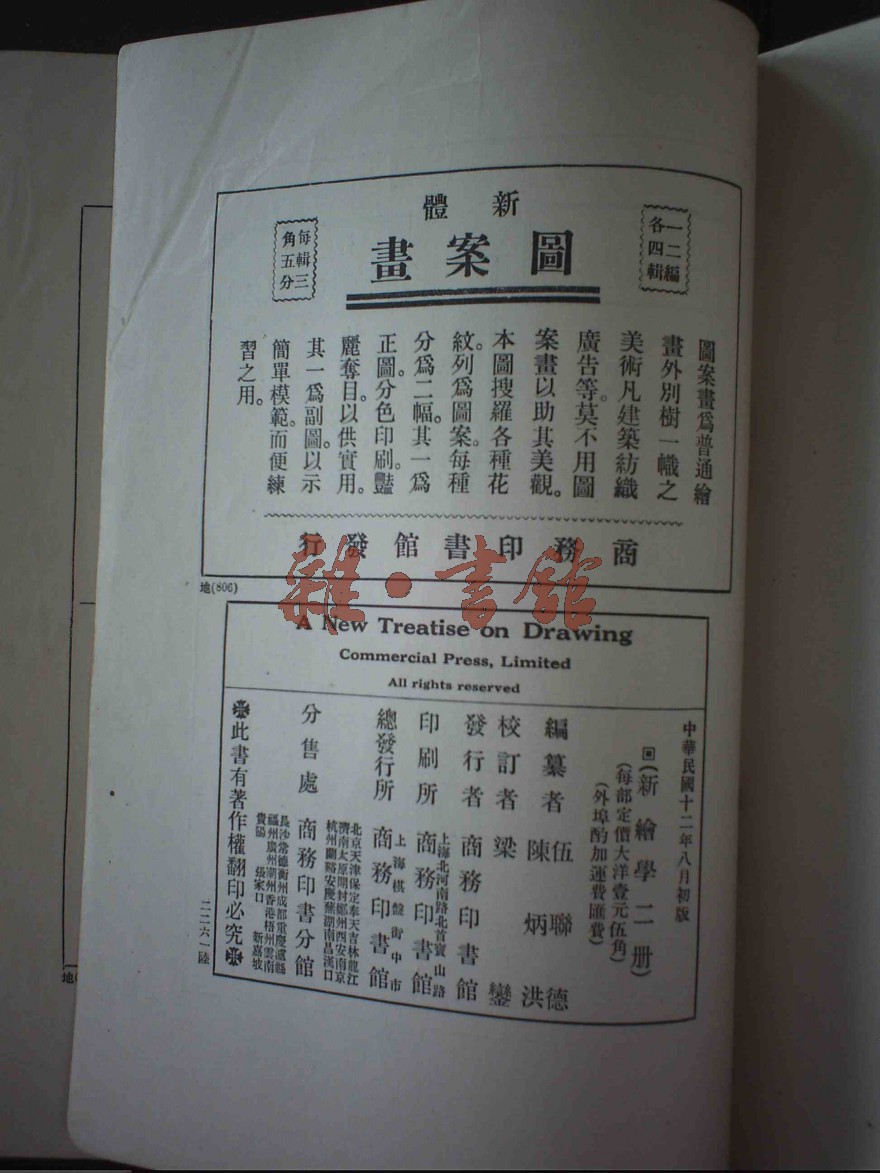 新體
圖案畫
一二編
各四輯
每輯三
角五分
圖案畫爲普通繪
畫外別樹一幟之
美術凡建築紡織
廣告等。莫不用圖
案畫以助其美觀。
本圖搜羅各種花
紋。列爲圖案。每種
分爲二幅。其一爲
正圖。分色印刷。豔
麗奪目。以供實用。
其一爲副圖。以示
簡單模範。而便練
習之用。
商務印書館發行
地(806)
雜·書館
A New Treatise on Drawing
Commercial Press, Limited
All rights reserved
中華民國十二年八月初版
(新繪學二册)
(每部定價大洋壹元伍角)
(外埠酌加運費匯費)
編纂者 伍聯德
陳炳洪
校訂者 梁鑾
發行者 商務印書館
印刷所 上海北河南路北首寶山路
商務印書館
總發行所 上海棋盤街中市
商務印書館
分售處 商務印書分館
北京天津保定奉天吉林龍江
濟南太原開封鄭州西安南京
杭州蘭谿安慶蕪湖南昌漢口
長沙常德衡州成都重慶瀘縣
福州廣州潮州香港梧州雲南
貴陽 張家口 新嘉坡
此書有著作權翻印必究
二二六一陸